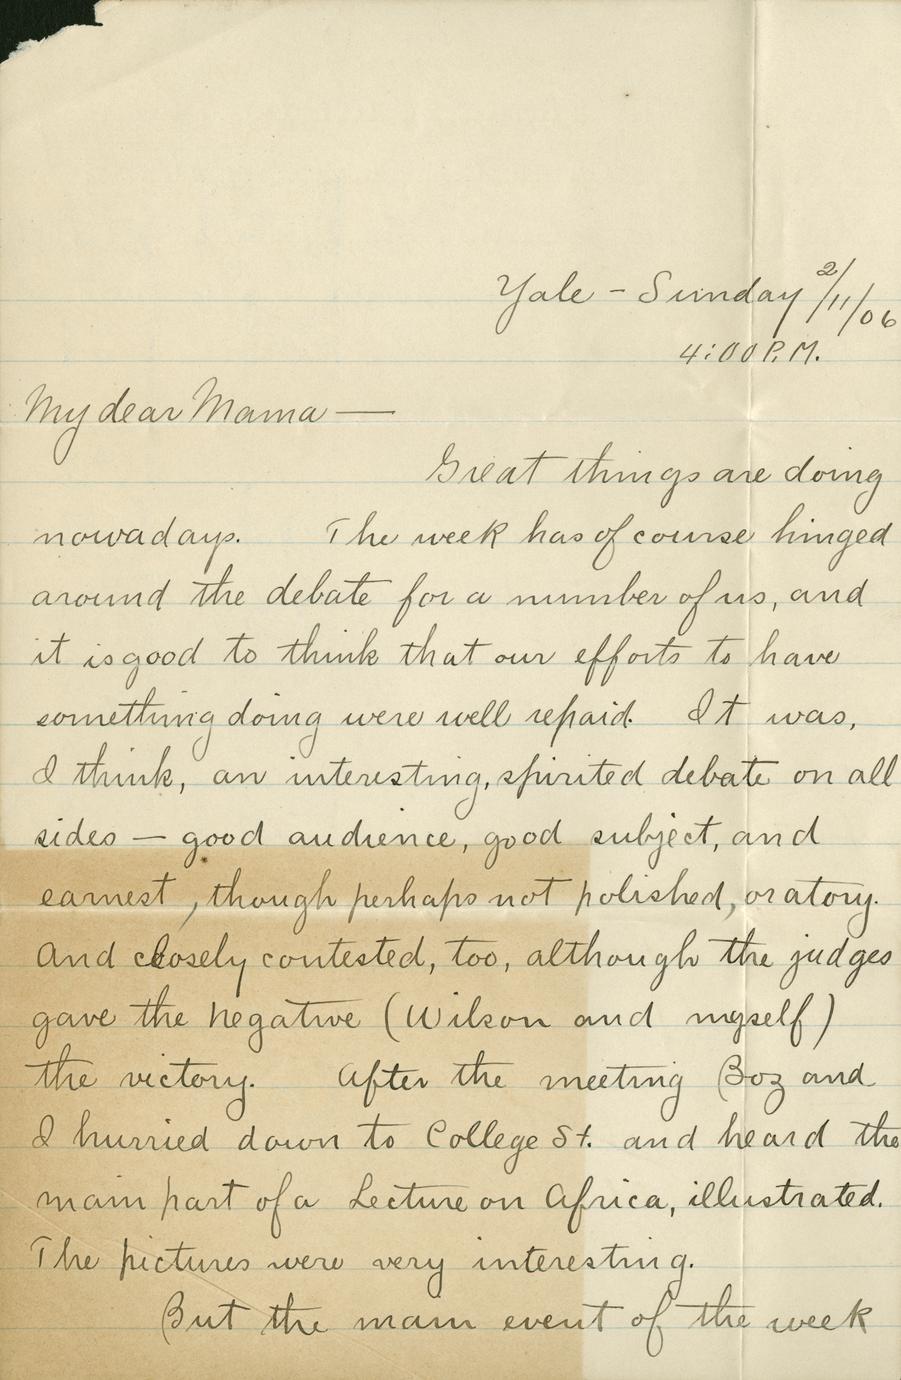 Yale - Sunday 2/11/06
4:00 P.M.
My dear Mama —
Great things are doing
nowadays. The week has of course hinged
around the debate for a number of us, and
it is good to think that our efforts to have
something doing were well repaid. It was,
I think, an interesting, spirited debate on all
sides — good audience, good subject, and
earnest, though perhaps not polished, oratory.
And closely contested, too, although the judges
gave the negative (Wilson and myself)
the victory. After the meeting Boz and
I hurried down to College St. and heard the
main part of a Lecture on Africa, illustrated.
The pictures were very interesting.
But the main event of the week